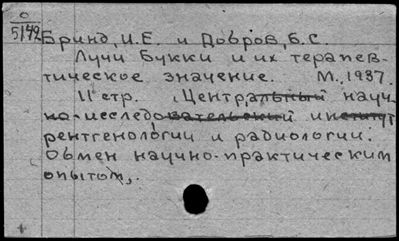 О
5142
Бринд, И.Е. и Добров, Б.С.
Лучи Букки и их терапев-
тическое значение. М., 1937.
11 стр. "Центральный науч-
но-исследовательский институт
рентгенологии и радиологии.
Обмен научно-практическим
опытом".